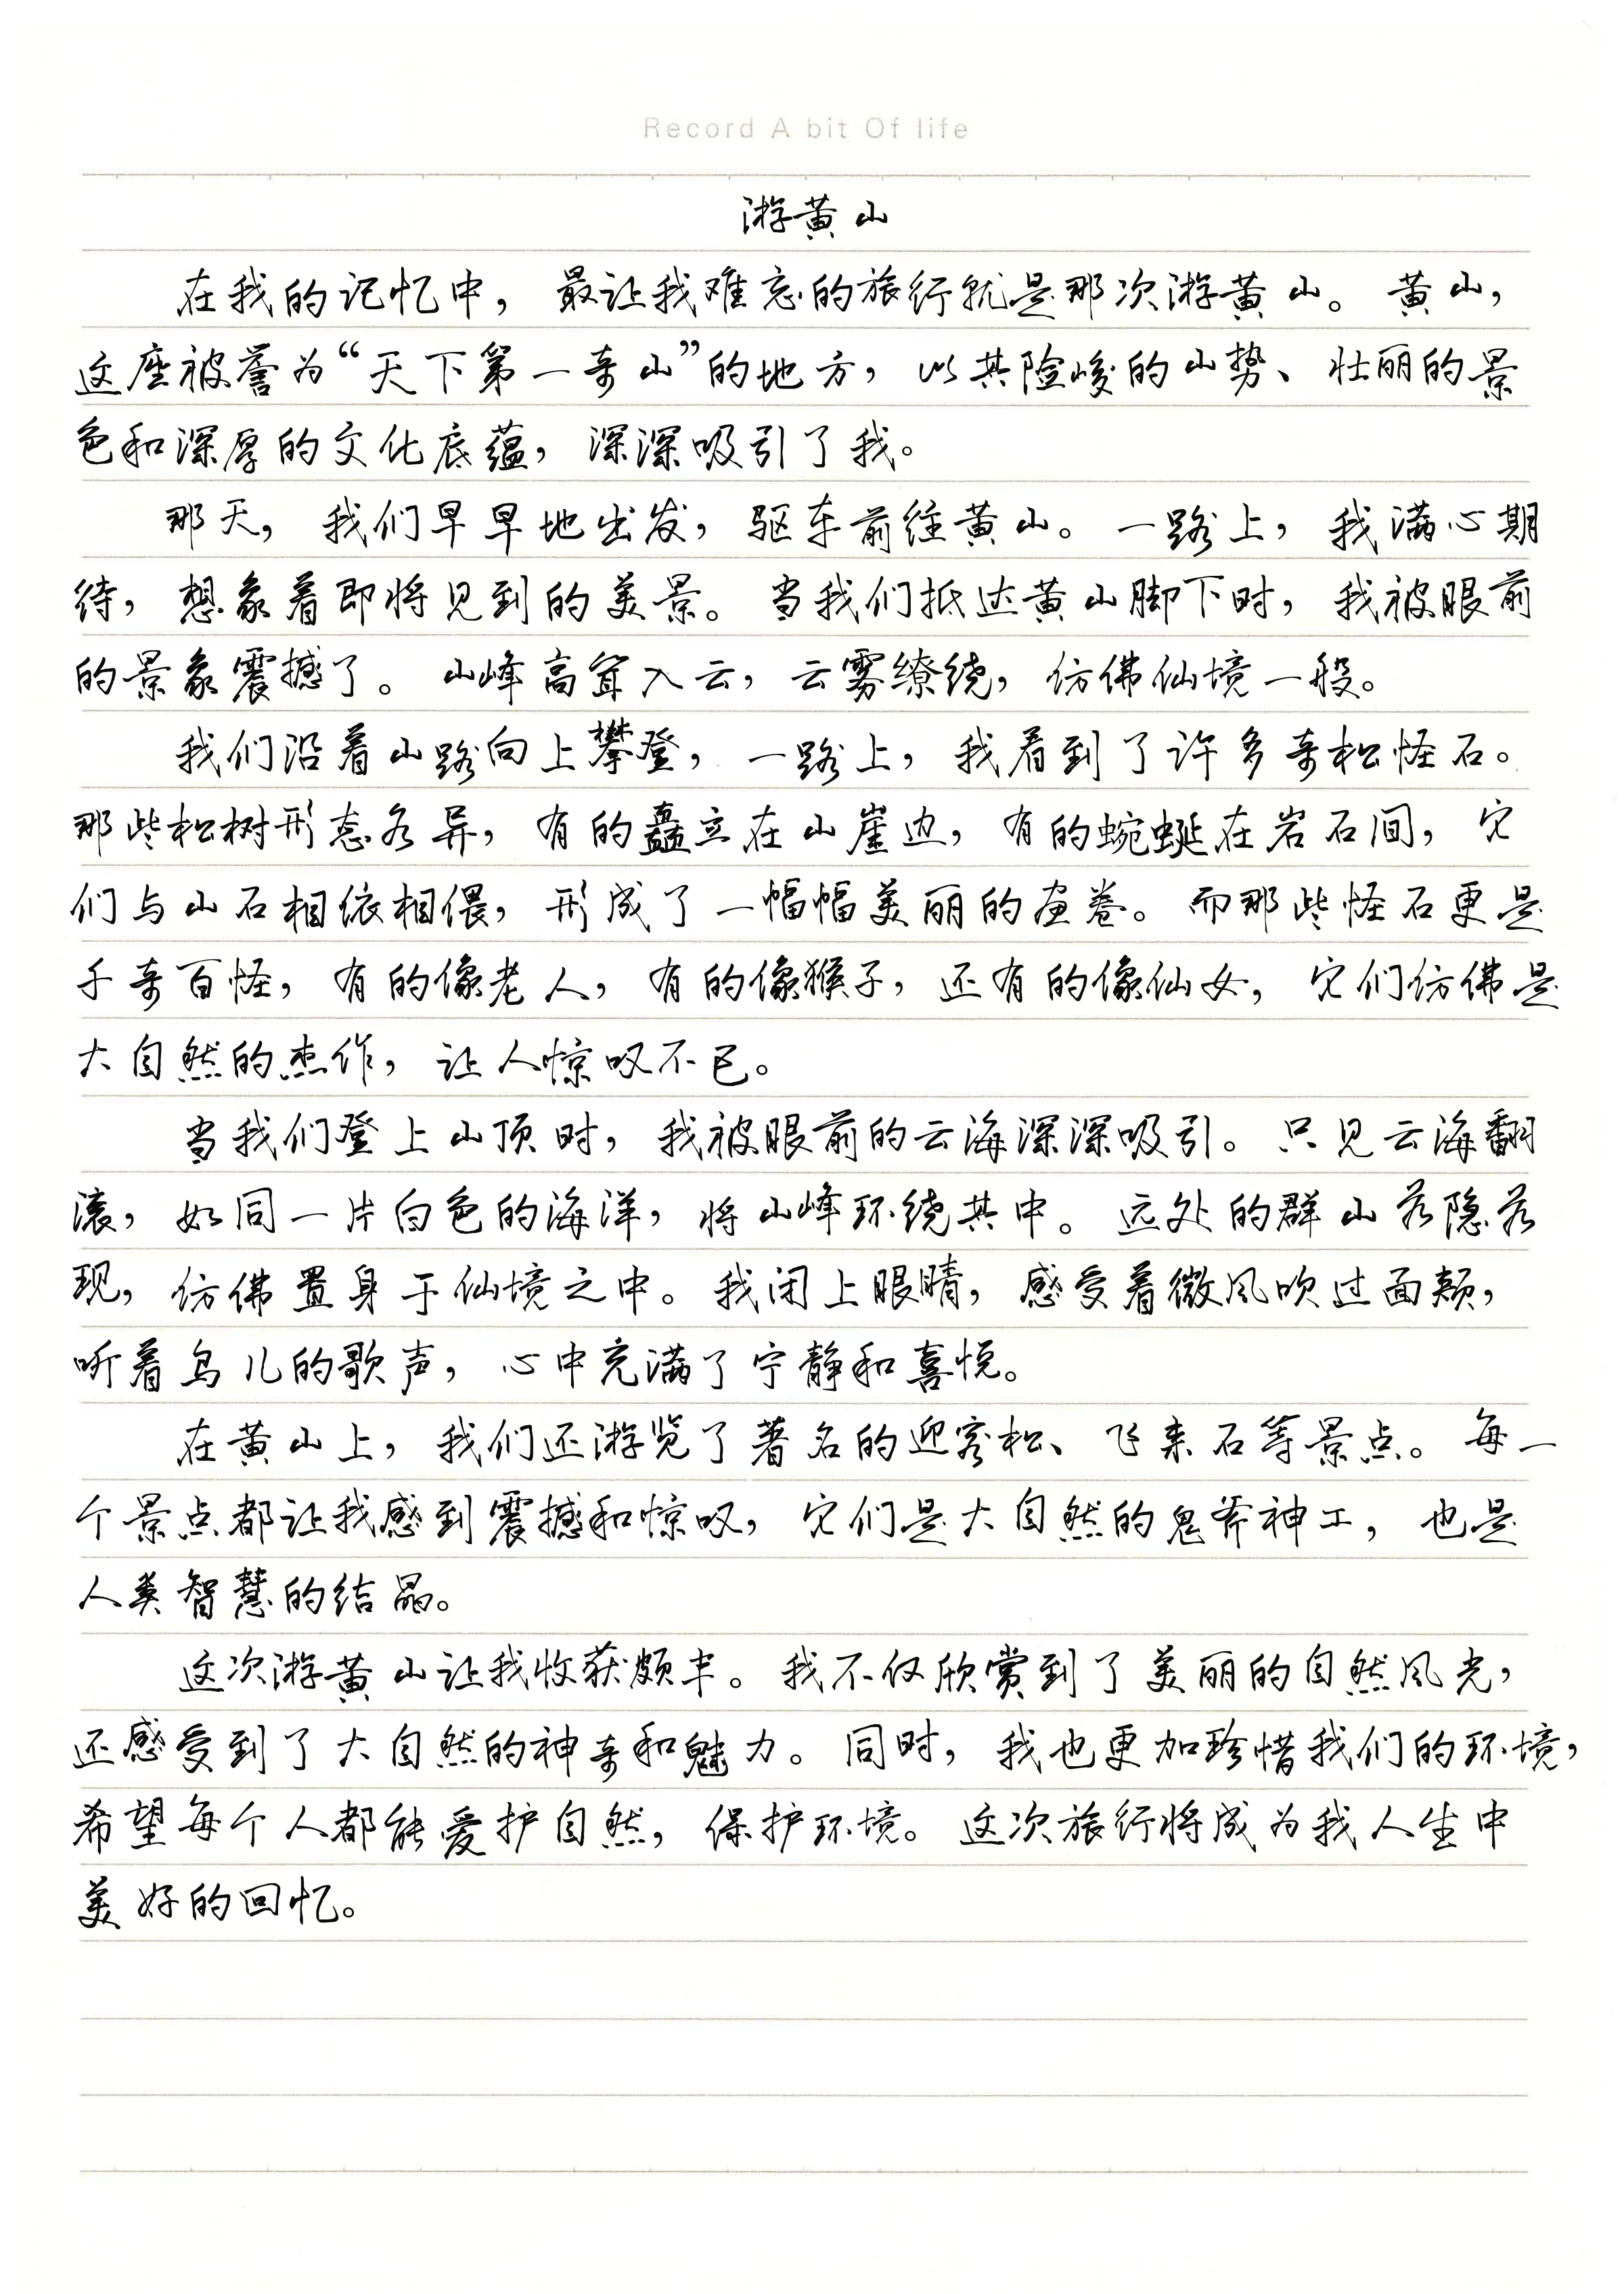 Record A bit Of life
游黄山
在我的记忆中，最让我难忘的旅行就是那次游黄山。黄山，
这座被誉为“天下第一奇山”的地方，以其险峻的山势、壮丽的景
色和深厚的文化底蕴，深深吸引了我。
那天，我们早早地出发，驱车前往黄山。一路上，我满心期
待，想象着即将见到的美景。当我们抵达黄山脚下时，我被眼前
的景象震撼了。山峰高耸入云，云雾缭绕，仿佛仙境一般。
我们沿着山路向上攀登，一路上，我看到了许多奇松怪石。
那些松树形态各异，有的矗立在山崖边，有的蜿蜒在岩石间，它
们与山石相依相偎，形成了一幅幅美丽的画卷。而那些怪石更是
千奇百怪，有的像老人，有的像猴子，还有的像仙女，它们仿佛是
大自然的杰作，让人惊叹不已。
当我们登上山顶时，我被眼前的云海深深吸引。只见云海翻
滚，如同一片白色的海洋，将山峰环绕其中。远处的群山若隐若
现，仿佛置身于仙境之中。我闭上眼睛，感受着微风吹过面颊，
听着鸟儿的歌声，心中充满了宁静和喜悦。
在黄山上，我们还游览了著名的迎客松、飞来石等景点。每一
个景点都让我感到震撼和惊叹，它们是大自然的鬼斧神工，也是
人类智慧的结晶。
这次游黄山让我收获颇丰。我不仅欣赏到了美丽的自然风光，
还感受到了大自然的神奇和魅力。同时，我也更加珍惜我们的环境，
希望每个人都能爱护自然，保护环境。这次旅行将成为我人生中
美好的回忆。